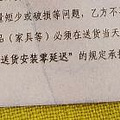 量短少或破损等问题，乙方不
品（家具等）必须在送货当天
送货安装零延迟”的规定承